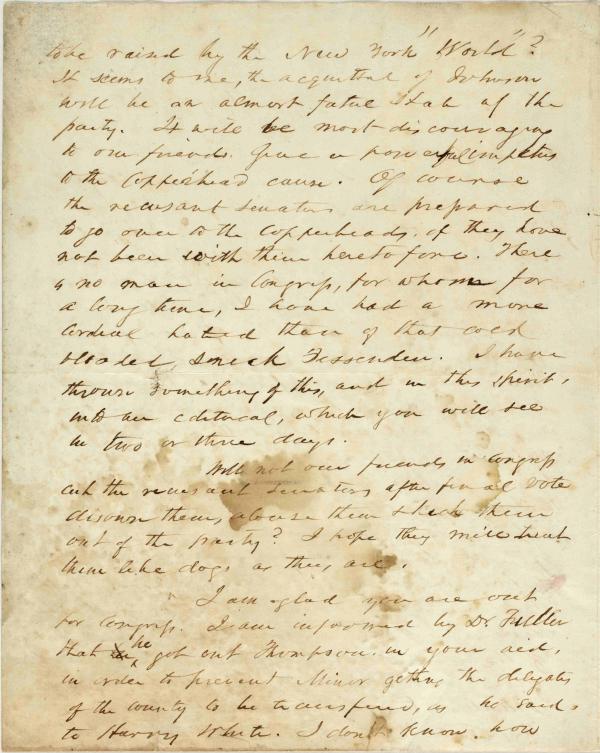 to be raised by the New York "World"?
It seems to me, the acquittal of Johnson
will be an almost fatal stab at the
party. It will be most discouraging
to our friends. Give a powerful impetus
to the Copperhead cause. Of course
the recusant senators are prepared
to go over to the Copperheads. if they have
not been with them heretofore. There
is no man in Congress, for whom for
a long time, I have had a more
cordial hatred than of that cold
blooded, sneak Fessenden. I have
thrown something of this, and in this spirit,
into an editorial, which you will see
in two or three days.
Will not our friends in Congress
cut the recusant senators after final vote
disown them, abuse them & kick them
out of the party? I hope they will treat
them like dogs as they are.
I am glad you are out
for Congress. I am informed by Dr Fuller
that he got out Thompson in your aid,
in order to prevent Minor getting the delegates
of the county to be transferred, as he said,
to Harry White. I don't know how